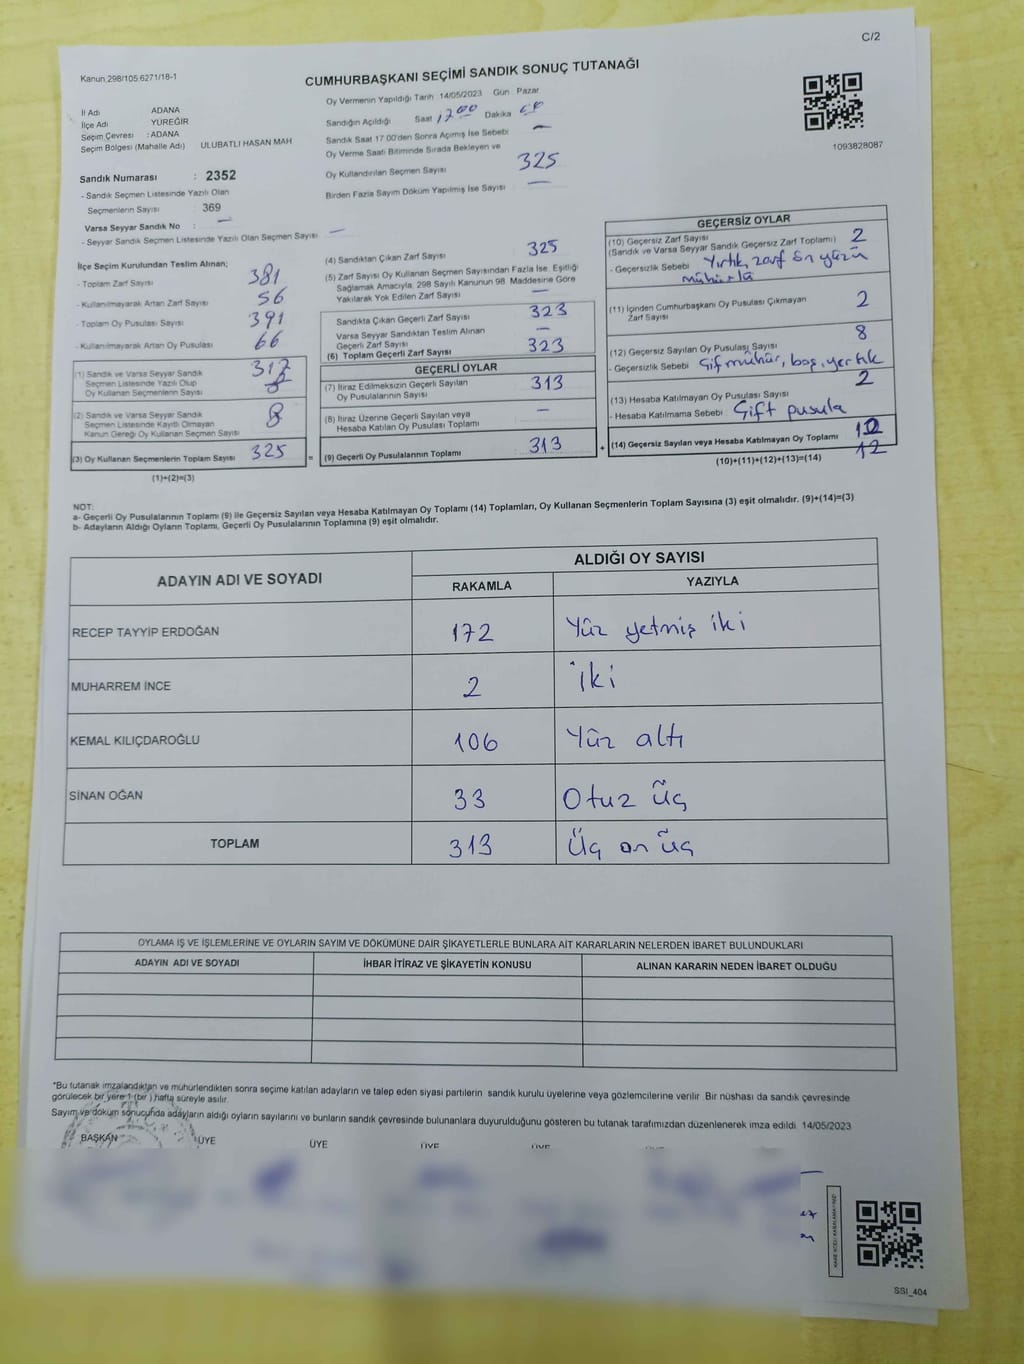 C/2
Kanun 298/105 6271/18-1
CUMHURBAŞKANI SEÇİMİ SANDIK SONUÇ TUTANAĞI
İl Adı ADANA
İlçe Adı YÜREĞİR
Seçim Çevresi : ADANA
Seçim Bölgesi (Mahalle Adı) ULUBATLI HASAN MAH
Sandık Numarası : 2352
- Sandık Seçmen Listesinde Yazılı Olan
Seçmenlerin Sayısı : 369
Varsa Seyyar Sandık No : —
- Seyyar Sandık Seçmen Listesinde Yazılı Olan Seçmen Sayısı —
Oy Vermenin Yapıldığı Tarih 14/05/2023 Gün Pazar
Sandığın Açıldığı Saat 17:00 Dakika
Sandık Saat 17.00'den Sonra Açılmış İse Sebebi —
Oy Verme Saati Bitiminde Sırada Bekleyen ve
Oy Kullandırılan Seçmen Sayısı 325
Birden Fazla Sayım Döküm Yapılmış İse Sayısı —
1093828087
İlçe Seçim Kurulundan Teslim Alınan;
- Toplam Zarf Sayısı 381
- Kullanılmayarak Artan Zarf Sayısı 56
- Toplam Oy Pusulası Sayısı 391
- Kullanılmayarak Artan Oy Pusulası 66
(1) Sandık ve Varsa Seyyar Sandık
Seçmen Listesinde Yazılı Olup
Oy Kullanan Seçmenlerin Sayısı 317
(2) Sandık ve Varsa Seyyar Sandık
Seçmen Listesinde Kayıtlı Olmayan
Kanun Gereği Oy Kullanan Seçmen Sayısı 8
(3) Oy Kullanan Seçmenlerin Toplam Sayısı 325
(1)+(2)=(3)
(4) Sandıktan Çıkan Zarf Sayısı 325
(5) Zarf Sayısı Oy Kullanan Seçmen Sayısından Fazla İse, Eşitliği
Sağlamak Amacıyla, 298 Sayılı Kanunun 98. Maddesine Göre
Yakılarak Yok Edilen Zarf Sayısı —
Sandıkta Çıkan Geçerli Zarf Sayısı 323
Varsa Seyyar Sandıktan Teslim Alınan
Geçerli Zarf Sayısı —
(6) Toplam Geçerli Zarf Sayısı 323
GEÇERLİ OYLAR
(7) İtiraz Edilmeksizin Geçerli Sayılan
Oy Pusulalarının Sayısı 313
(8) İtiraz Üzerine Geçerli Sayılan veya
Hesaba Katılan Oy Pusulası Toplamı —
= (9) Geçerli Oy Pusulalarının Toplamı 313
GEÇERSİZ OYLAR
(10) Geçersiz Zarf Sayısı
(Sandık ve Varsa Seyyar Sandık Geçersiz Zarf Toplamı) 2
- Geçersizlik Sebebi Yırtık, zarf ön yüzü
mühürlü
(11) İçinden Cumhurbaşkanı Oy Pusulası Çıkmayan
Zarf Sayısı 2
(12) Geçersiz Sayılan Oy Pusulası Sayısı 8
- Geçersizlik Sebebi Çif mühür, boş, yertık
(13) Hesaba Katılmayan Oy Pusulası Sayısı 2
- Hesaba Katılmama Sebebi Çift pusula
+ (14) Geçersiz Sayılan veya Hesaba Katılmayan Oy Toplamı 12
(10)+(11)+(12)+(13)=(14)
NOT:
a- Geçerli Oy Pusulalarının Toplamı (9) ile Geçersiz Sayılan veya Hesaba Katılmayan Oy Toplamı (14) Toplamları, Oy Kullanan Seçmenlerin Toplam Sayısına (3) eşit olmalıdır. (9)+(14)=(3)
b- Adayların Aldığı Oyların Toplamı, Geçerli Oy Pusulalarının Toplamına (9) eşit olmalıdır.
ADAYIN ADI VE SOYADI ALDIĞI OY SAYISI
RAKAMLA YAZIYLA
RECEP TAYYİP ERDOĞAN 172 Yüz yetmiş iki
MUHARREM İNCE 2 iki
KEMAL KILIÇDAROĞLU 106 Yüz altı
SİNAN OĞAN 33 Otuz üç
TOPLAM 313 Üç on üç
OYLAMA İŞ VE İŞLEMLERİNE VE OYLARIN SAYIM VE DÖKÜMÜNE DAİR ŞİKAYETLERLE BUNLARA AİT KARARLARIN NELERDEN İBARET BULUNDUKLARI
ADAYIN ADI VE SOYADI İHBAR İTİRAZ VE ŞİKAYETİN KONUSU ALINAN KARARIN NEDEN İBARET OLDUĞU
*Bu tutanak imzalandıktan ve mühürlendikten sonra seçime katılan adayların ve talep eden siyasi partilerin sandık kurulu üyelerine veya gözlemcilerine verilir. Bir nüshası da sandık çevresinde
görülecek bir yere 1 (bir) hafta süreyle asılır.
Sayım ve döküm sonucunda adayların aldığı oyların sayılarını ve bunların sandık çevresinde bulunanlara duyurulduğunu gösteren bu tutanak tarafımızdan düzenlenerek imza edildi. 14/05/2023
BAŞKAN ÜYE ÜYE ÜYE
SSI_404